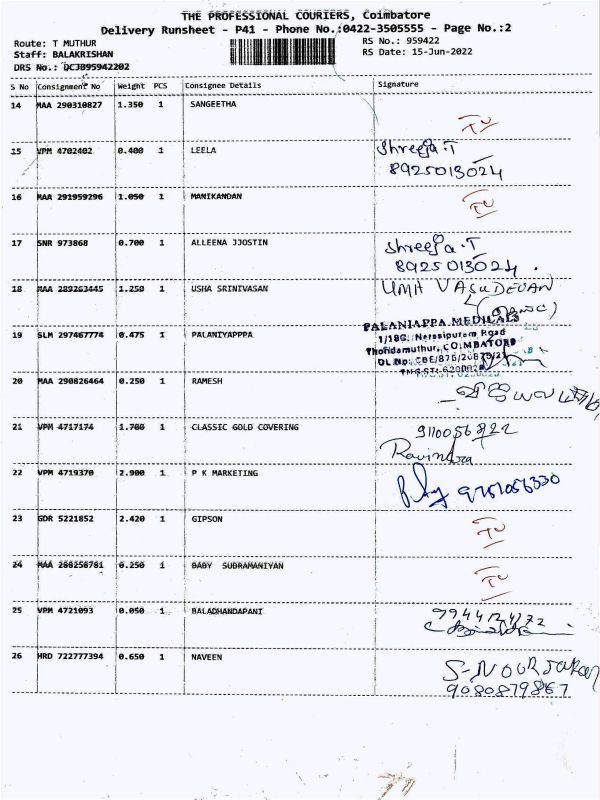 THE PROFESSIONAL COURIERS, Coimbatore
Delivery Runsheet - P41 - Phone No.:0422-3505555 - Page No.:2
Route: T MUTHUR RS No.: 959422
Staff: BALAKRISHAN RS Date: 15-Jun-2022
DRS No.: QCJB95942202
S No Consignment No Weight PCS Consignee Details Signature
14 MAA 290310827 1.350 1 SANGEETHA
15 VPM 4702402 0.400 1 LEELA Shreeja.T
8925013024
16 MAA 291959296 1.050 1 MANIKANDAN
17 SNR 973868 0.700 1 ALLEENA JJOSTIN Shreeja.T
8925013024.
18 MAA 289263445 1.250 1 USHA SRINIVASAN UMA VASUDEVAN
19 SLM 297467774 0.475 1 PALANIYAPPPA PALANIAPPA MEDICALS
1/18G, Narasipuram Road
Thondamuthur, COIMBATORE
20 MAA 290826464 0.250 1 RAMESH
21 VPM 4717174 1.700 1 CLASSIC GOLD COVERING
Ravindra
22 VPM 4719370 2.900 1 P K MARKETING
23 GDR 5221852 2.420 1 GIPSON
24 MAA 288258781 0.250 1 BABY SUBRAMANIYAN
25 VPM 4721093 0.050 1 BALADHANDAPANI
26 HRD 722777394 0.650 1 NAVEEN
9080879867